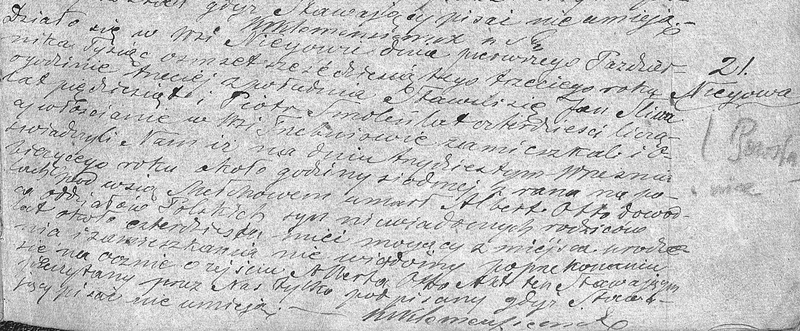 gdyż Stawający pisać nie umieją.
Działo się w Wsi Niegowie dnia pierwszego Paździer-
nika tysiąc ośmset sześćdziesiątego trzeciego roku
21.
Niegowa
godzinie trzeciej z południa Stawili się Jan Śliwa
lat pięćdziesiąt i Piotr Smoleń lat czterdzieści liczą-
cy włościanie w Wsi zamieszkali i o-
świadczyli Nam iż na dniu trzydziestym Września
bieżącego roku około godziny siódmej z rana na po-
lach pod wsią Mełchowem umarł Albert Otto dowód-
ca oddziałów Polskich syn niewiadomych rodziców
lat około czterdzieści mieć mogący z miejsca urodze-
nia i zamieszkania nie wiadomy po przekonaniu
się naocznie o zejściu Alberta Otto Akt ten Stawającym
przeczytany przez Nas tylko podpisany gdyż Stawa-
jący pisać nie umieją.